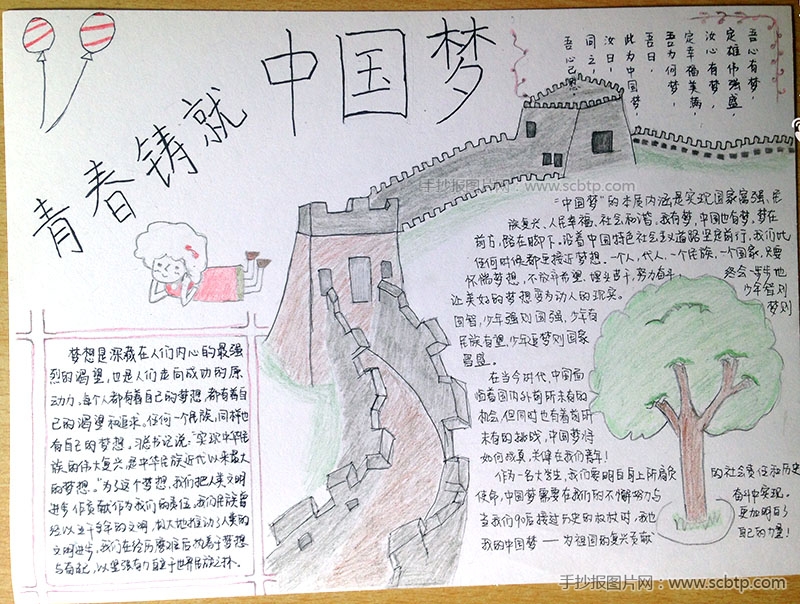 青春铸就
中国梦
吾心有梦，
定雄伟强盛，
汝心有梦，
定幸福美满，
吾为何梦，
吾日，
此为中国梦，
汝日，
同之，
手抄报图片网：www.scbtp.com
“中国梦”的本质内涵是实现国家富强、民
族复兴、人民幸福、社会和谐。我有梦，中国也有梦，梦在
前方，路在脚下。沿着中国特色社会主义道路坚定前行，我们比
任何时候都更接近梦想。一个人，一代人，一个民族，一个国家，只要
怀惴梦想，不放弃希望，埋头苦干，努力奋斗，终会一步步地
让美好的梦想变为动人的现实。少年智则
国智，少年强则国强，少年有梦则
民族有望，少年逐梦则国家
昌盛。
在当今时代，中国面
临着国内外前所未有的
机会，但同时也有着前所
未有的挑战，中国梦将
如何成真，关键在我们青年！
作为一名大学生，我们要明白身上所肩负的社会责任和历史
使命，中国梦需要在我们的不懈努力与奋斗中实现。
当我们90后接过历史的放杖时，我也更加明白了
我的中国梦——为祖国的复兴贡献自己的力量！
梦想是深藏在人们内心的最强
烈的渴望，也是人们走向成功的原
动力。每个人都有着自己的梦想，都有着自
己的渴望和追求。任何一个民族，同样也
有自己的梦想。习总书记说：“实现中华民
族的伟大复兴，是中华民族近代以来最大
的梦想。”为了这个梦想，我们把人类文明
进步作贡献作为我们的责任。我们民族曾
经以五千多年的文明，极大地推动了人类的
文明进步，我们在经历磨难后
以坚强有力
世界民族之林。
手抄报图片网：www.scbtp.com